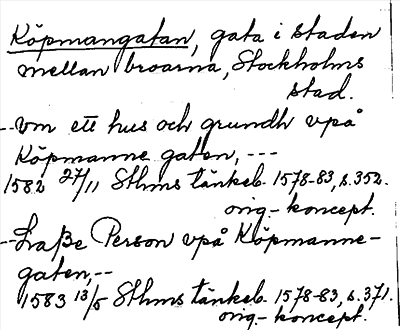 Köpmangatan, gata i staden
mellan broarna, Stockholms
stad.
--vm ett hus och grundh vpå
Köpmanne gaten, ---
1582 27/11 Sthms tänkeb. 1578-83, s. 352.
orig.-koncept.
--Laße Person vpå Köpmanne-
gaten,--
1583 13/5 Sthms tänkeb. 1578-83, s. 371.
orig.-koncept.